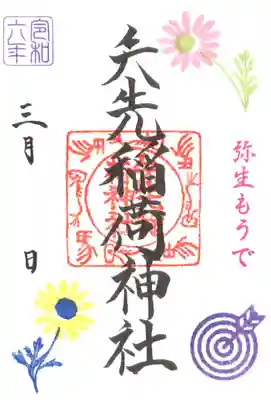 弥生もうで
矢先稲荷神社
令和
六年
三月 日